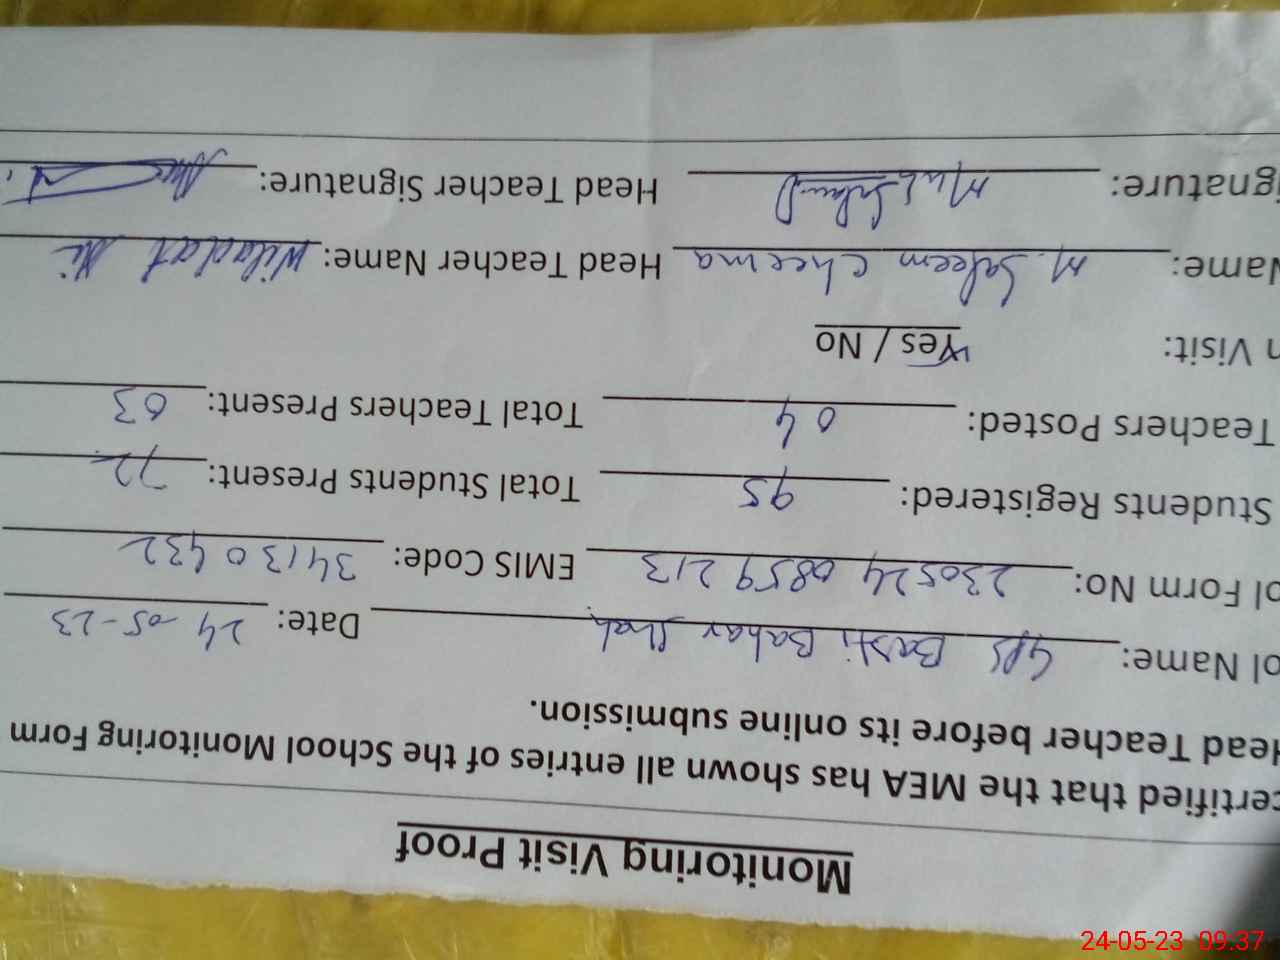 Monitoring Visit Proof
ertified that the MEA has shown all entries of the School Monitoring Form
ead Teacher before its online submission.
ol Name: GPS Basti Bahar Shah Date: 24-05-23
ol Form No: 230524 0859 213 EMIS Code: 34130432
Students Registered: 95 Total Students Present: 72
Teachers Posted: 04 Total Teachers Present: 03
n Visit: Yes / No
Name: M. Saleem Cheema Head Teacher Name: Wiladat Ali
gnature: Head Teacher Signature:
24-05-23 09:37